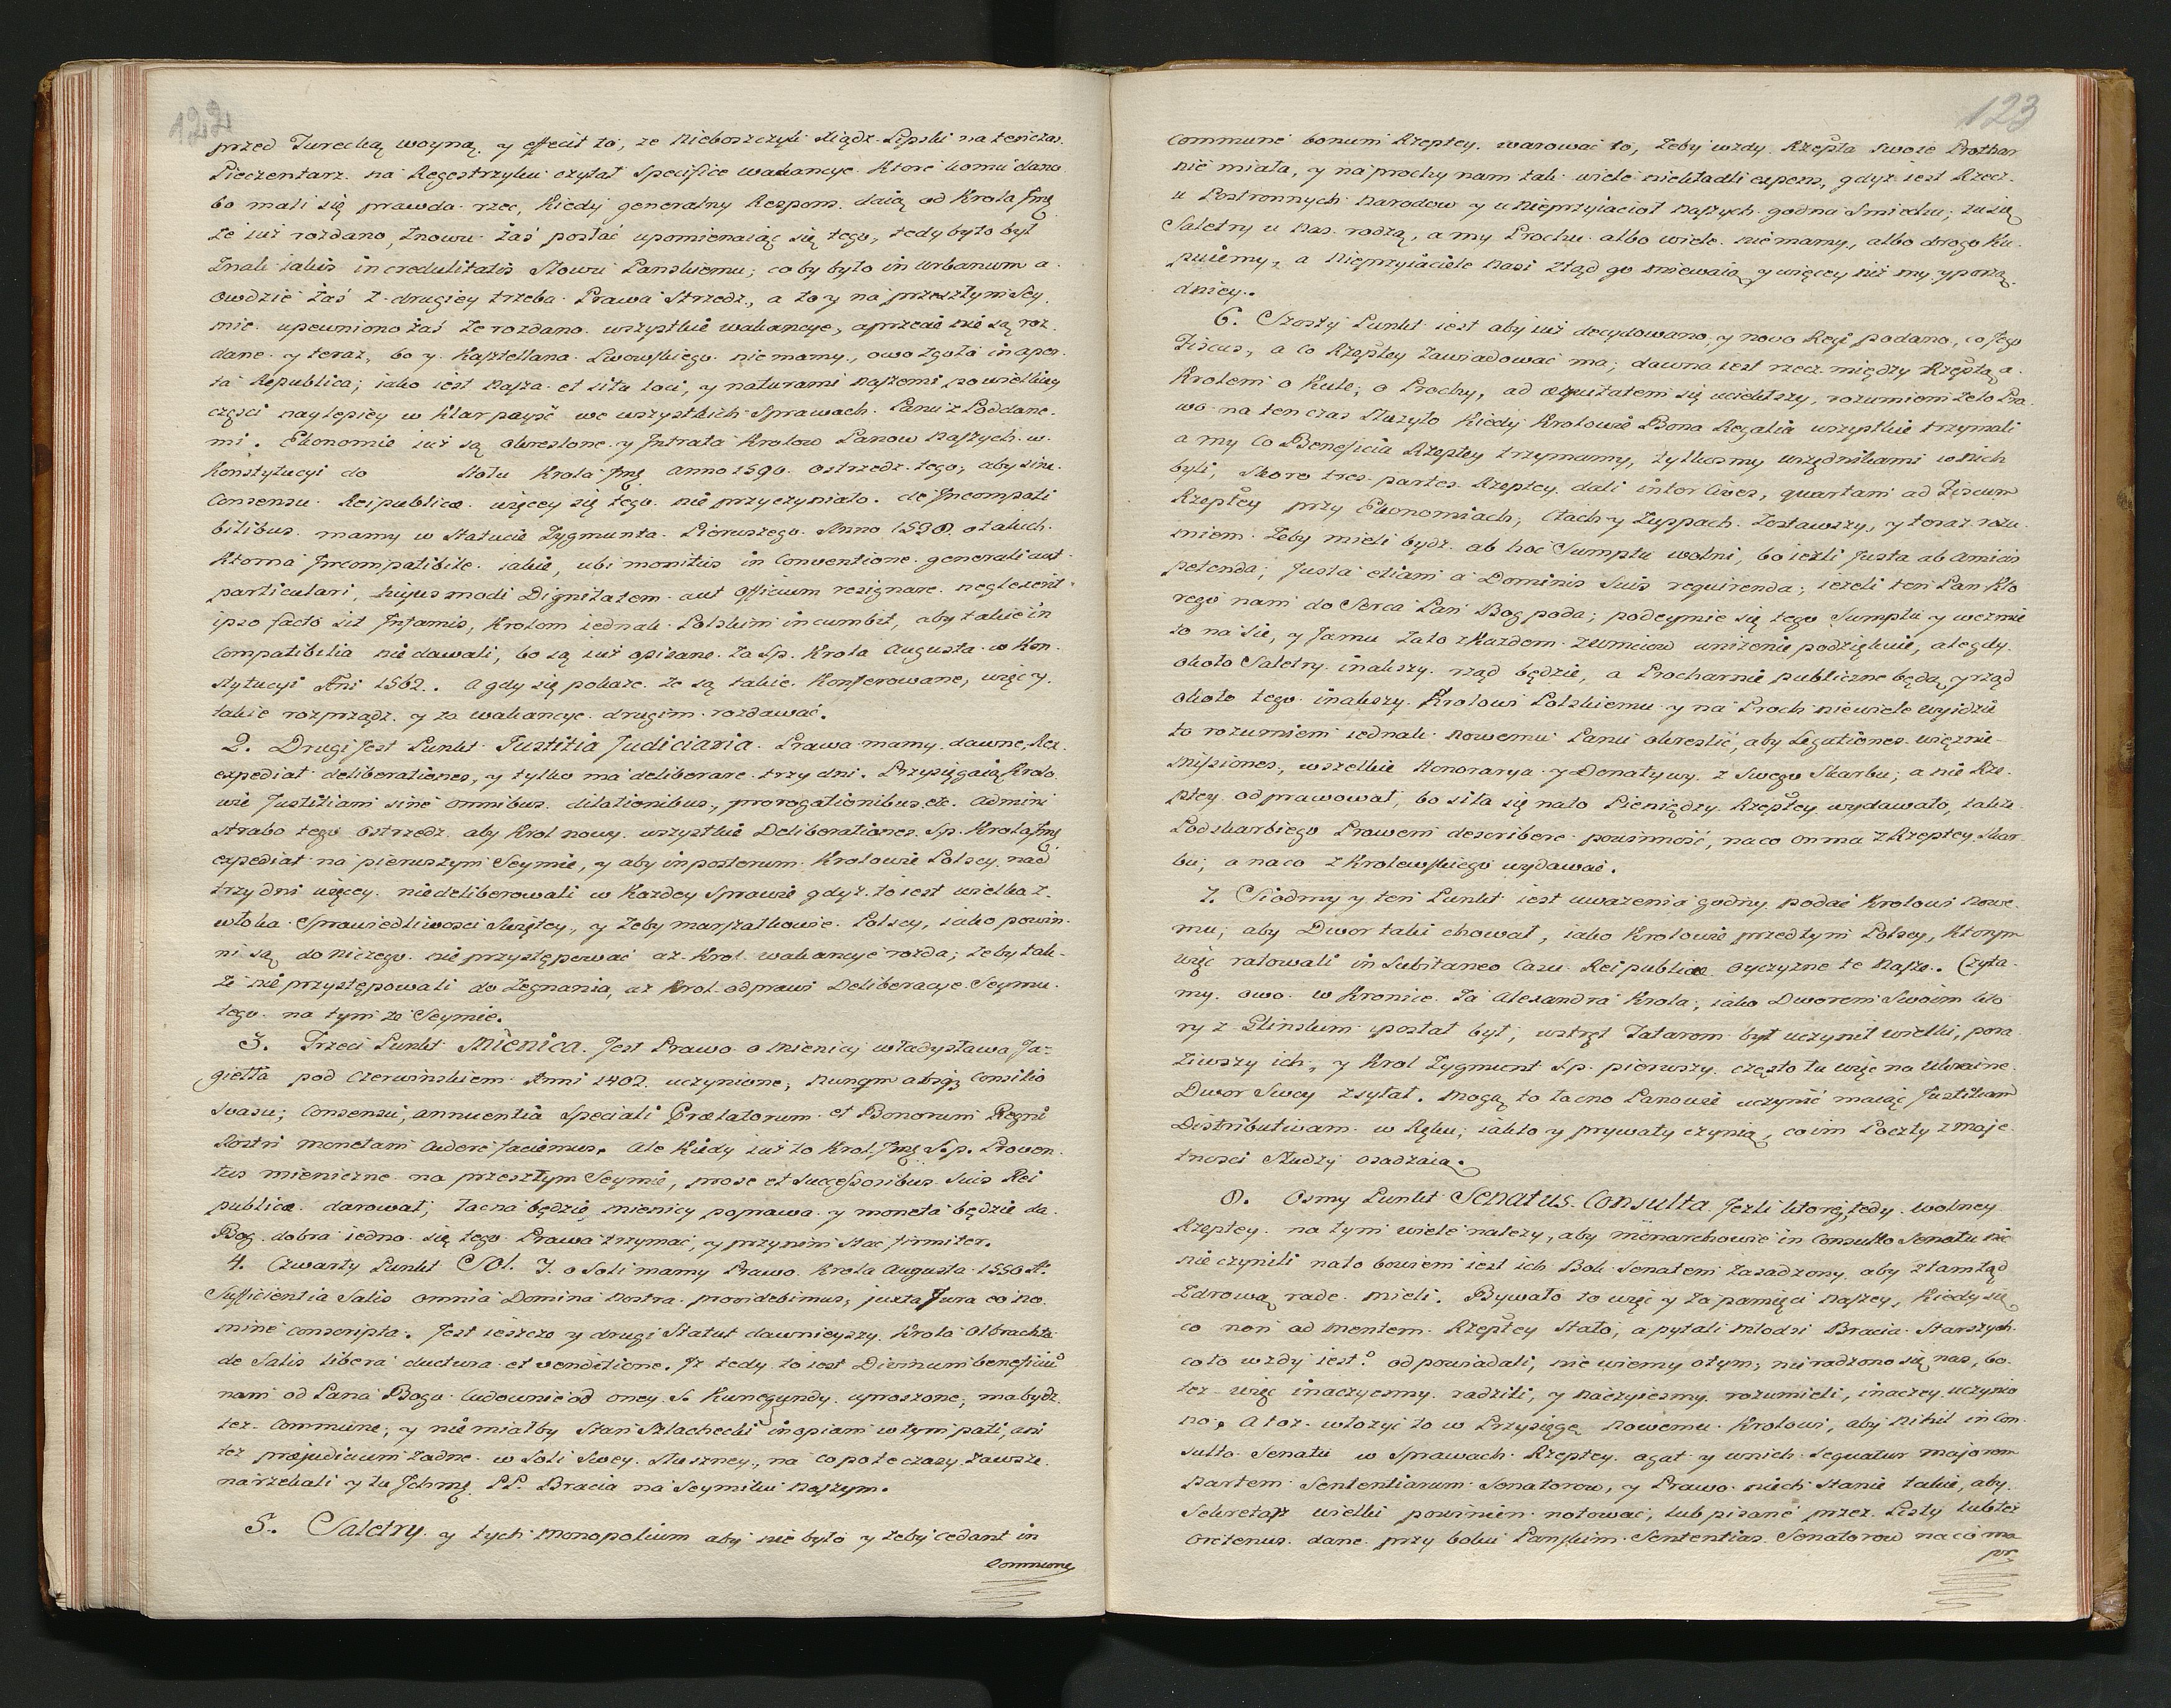 122
przed Turecką woyną. y effecit to, że Nieboszczyk Xiądz Lipski na tenczas
Pieczentarz na Regestrzyku czytał Specifice wakancye które komu dano
bo mali się prawda rzec, kiedy generalny Respons daią od Krola Jmę
że iuż rozdano, znowu zaś posłać upomienaiąc się tego, tedy było był
Znak iakiś incredulitatis Słowu Panskiemu; co by było in Urbanum a
owdzie zaś z drugiey trzeba Prawa strzedz, a to y na przeszłym Sey
mie upewniono zaś że rozdano wszystkie wakancye, a przecie nie są roz
dane y teraz, bo y Kasztellana Lwowskiego nie mamy, owo zgoła in aper
ta Republica; iako iest Nasza et situ loci, y naturami naszemi po wielkiey
części naylepiey w Klar payść we wszystkich Sprawach Panu z Poddane
mi. Ekonomie iuż są okreslone y Intrata Krolow Panow Naszych w
Konstytucyi do Stołu Krola Jmę anno 1590. ostrzedz tego, aby sine
Consensu Reipublicæ więcey się tego nie przyczyniało. de Incompati
bilibus mamy w Statucie Zygmunta Pierwszego Anno 1538. o takich
Ktorna Incompatibile iakie, ubi monitus in Conventione generali aut
particulari, hujusmodi Dignitatem aut Officium resignare neglexerit
ipso facto sit Infamis, Krolom iednak Polskim incumbit, aby takie in
compatibilia nie dawali, bo są iuż opisane za Sp. Krola Augusta w Kon
stytucyi Ani 1562. A gdy się pokaże że są takie Konferowane, więc y
takie rozprządz y za wakancye drugim rozdawać.
2. Drugi Jest Punkt Justitia Judiciaria. Prawa mamy dawne, Rex
expediat deliberationes, y tylko ma deliberare trzy dni. Przysięgaią Krolo
wie Justitiam sine omnibus dilationibus, prorogationibus etc. admini
strabo tego ostrzedz aby Krol nowy wszystkie Deliberationes Sp. Krola Jmę
expediat na pierwszym Seymie, y aby inposterum Krolowie Polscy nad
trzy dni więcey niedeliberowali w Każdey Sprawie gdyż to iest wielka z
włoka Sprawiedliwosci Świętey, y żeby marszałkowie Polscy, iako powin
ni są do niczego nie przystępować aż Krol wakancye rozda; żeby tak
że nie przystępowali do Zegnania, aż Krol odprawi Deliberacye Seymu
tego na tym że Seymie.
3. Trzeci Punkt Mienica. Jest Prawo o Mienicy Władysława Ja=
giełła pod Czerwinskiem Anni 1402. uczynione; nunqm absqz Consilio
Svasu; Consensu; annuentia Speciali Prælatorum et Bonorum Regni
Nostri monetam Cudere faciemus. Ale Kiedy iuż to Krol Jmę S.p. Proven
tus mieniczne na przeszłym Seymie, pro se et Successoribus Suis Rei
publicæ darował, zacna będzie mienicy poprawa y moneta będzie da
Bog dobra iedno się tego Prawa trzymać, y przynim stac firmiter.
4. Czwarty Punkt Sol. J. o Soli mamy Prawo Krola Augusta 1550 Aº
Sufficientia Salis omnia Domina Nostra providebimus, juxta Jura eo no
mine conscripta. Jest ieszcze y drugi Statut dawnieyszy Krola Olbrachta
de Salis libera ductura et venditione. Iż tedy to iest Divinum beneficiū
nam od Pana Boga Cudownie od oney S. Kunegundy uproszone; ma bydz
też Commune, y nie miałby Stan Szlachecki inopiam w tym pati, ani
też præjudicium żadne w Soli Swey Suszney, na co po te czasy zawsze
narzekali y tu Ichmę PP. Bracia na Seymiku naszym.
5. Saletry y tych Monopolium aby nie było y żeby cedant in
Commune
123
Commune bonum Rzeptey. warować to, żeby wzdy Rzepta Swoie Prochar
nie miała, y na prochy nam tak wiele niekładli expens, gdyż iest Rzecz
u Postronnych Narodow y u Nieprzyiacioł Naszych godna Smiechu; że się
Saletry u Nas rodzą, a my Prochu albo wiele nie mamy, albo drogo Ku
puiemy, a Nieprzyiaciele Nasi ztąd go miewaią y więcey niż my y porzą
dniey.
6. Szosty Punkt iest aby iuż decydowano, y novo Regi podano, co Jego
Fiscus, a co Rzeptey zawiadować ma; dawna iest rzecz między Rzeptą a
Krolem o Kule, o Prochy, ad æquitatem się uciekłszy, rozumiem że to Pra
wo na ten czas Służyło Kiedy Krolowie Bona Regalia wszystkie trzymali
a my Co Beneficia Rzeptey trzymamy, tylkosmy urzędnikami w nich
byli; Skoro tres partes Rzeptey dali inter Cives, quartam ad Fiscum
Rzeptey przy Ekonomiach, Cłach y Zuppach zostawszy, y teraz rozu
miem żeby mieli bydz ab hoc Sumptu wolni, bo ieżli Justa ab amicis
petenda, Justa etiam a Dominis Suis requirenda; ieżeli ten Pan Kto
rego nam do Serca Pan Bog poda; podeymie się tego Sumptu y weźmie
to na sie, y Jamu za to z każdem z umieiow unizenie podziękuie, ale gdy
około Saletry inakszy rząd będzie, a Procharnie publiczne będą, y rząd
około tego inakszy Krolowi Polskiemu y na Proch niewiele wyidzie
to rozumiem iednak nowemu Panu okreslić, aby Legationes więznie
Missiones, wszelkie Honorarya y Donatywy z Swego Skarbu; a nie Rze
ptey odprawował, bo siła się na to Pieniędzy Rzeptey wydawało, także
Podskarbiego Prawem describere powinność, na co on ma z Rzeptey Skar
bu; a na co z Krolewskiego wydawać.
7. Siodmy y ten Punkt iest uważenia godny podać Krolowi Nowe
mu; aby Dwor taki chował, iako Krolowie przedtym Polscy, Ktorym
więc ratowali in Subitaneo Casu Reipublicæ oyczyznę te Nasze. Czyta
my owo w Kronice za Alexandra Krola, iako Dworem Swoim kto
ry z Glinskim posłał był, wstręt Tatarom był uczynił wielki, pora
ziwszy ich, y Krol Zygmunt Sp. pierwszy często tu więc na Ukraine
Dwor Swoy zsyłał. Mogą to łacno Panowie uczynić maiąc Justitiam
Distributivam w Ręku; iak to y prywaty czynią, co im Poczty z maje
tnosci Słudzy osadzaią.
8. Osmy Punkt Senatus Consulta. Jezli ktorey, tedy wolney
Rzeptey na tym wiele należy, aby monarchowie in Consulto Senatu nic
nie czynili na to bowiem iest ich Bok Senatem zasadzony aby ztamtąd
Zdrową rade mieli. Bywało to więc y za pamięci Naszey, Kiedy się
co non ad mentem Rzeptey stało, a pytali młodsi Bracia Starszych
co to wzdy iest? odpowiadali, nie wiemy o tym, nie radzono się nas, bo
też więc inaczyesmy radzili, y naczyiesmy rozumieli, inaczey uczynio
no; A toż włożyć to w Przysięgę nowemu Krolowi, aby Nihil in Con
sulto Senatu w Sprawach Rzeptey agat y w nich Sequatur majorem
partem Sententiarum Senatorow, y Prawo niech Stanie takie, aby
Sekretarz wielki powinien notować, lub pisane przez Listy lub też
orctenus dane przy boku Panskim Sententias Senatorow na co ma
por